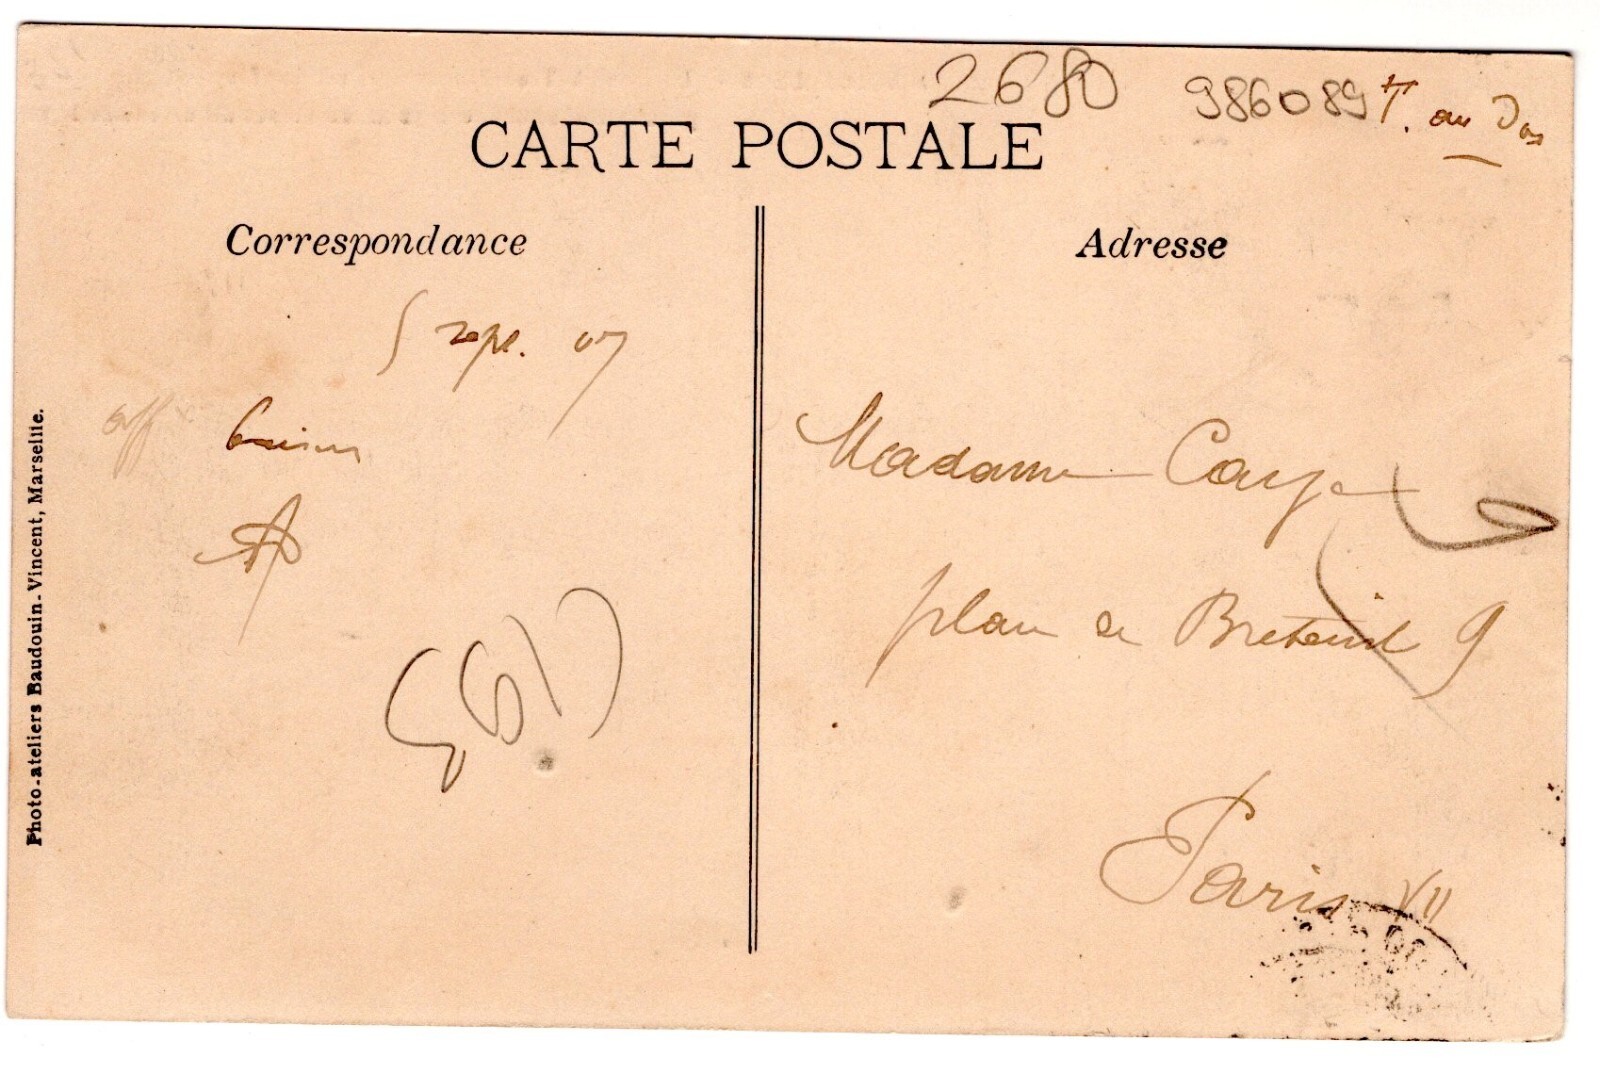 2680
986089 T. au Dos
CARTE POSTALE
Correspondance
Adresse
5 sept. 07
aff baisers
Madame
place de Breteuil 9
Paris VII
Photo-ateliers Baudouin-Vincent, Marseille.